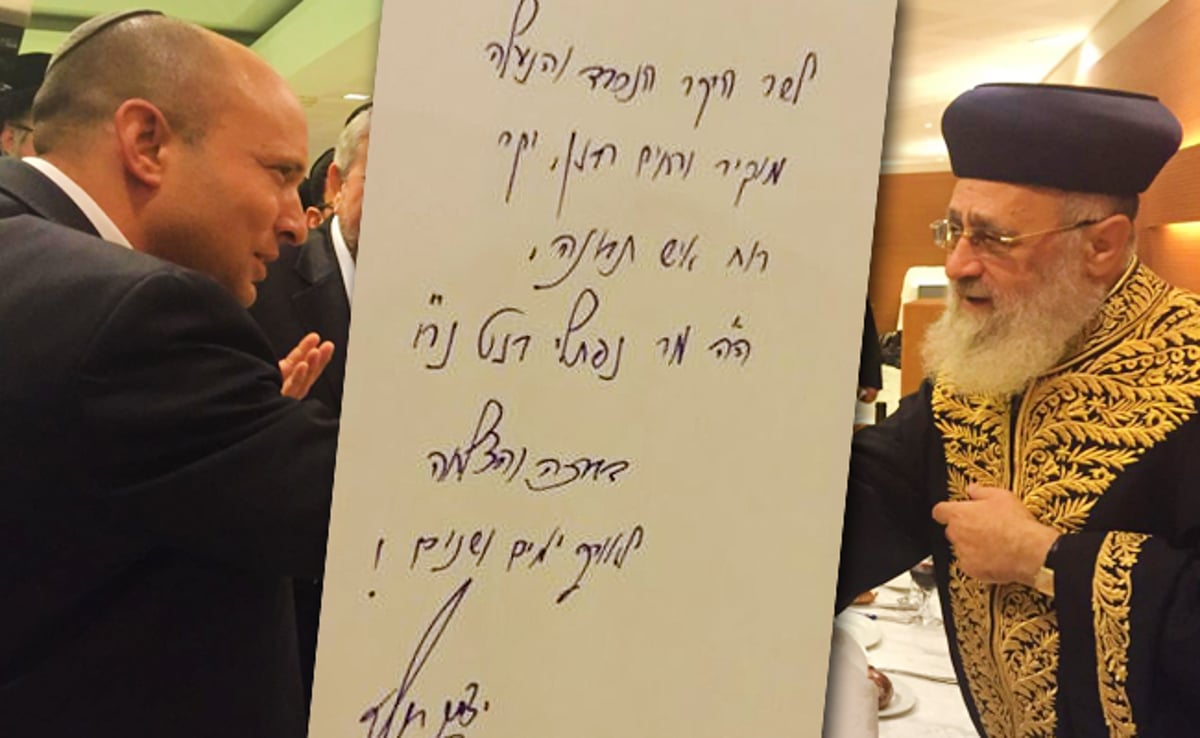 לשר היקר הנכבד והנעלה
מוקיר ורחים רבנן, יקר
רוח איש תבונה,
ה"ה מר נפתלי בנט נ"י
בברכה והצלחה
לאורך ימים ושנים !
יצחק יוסף